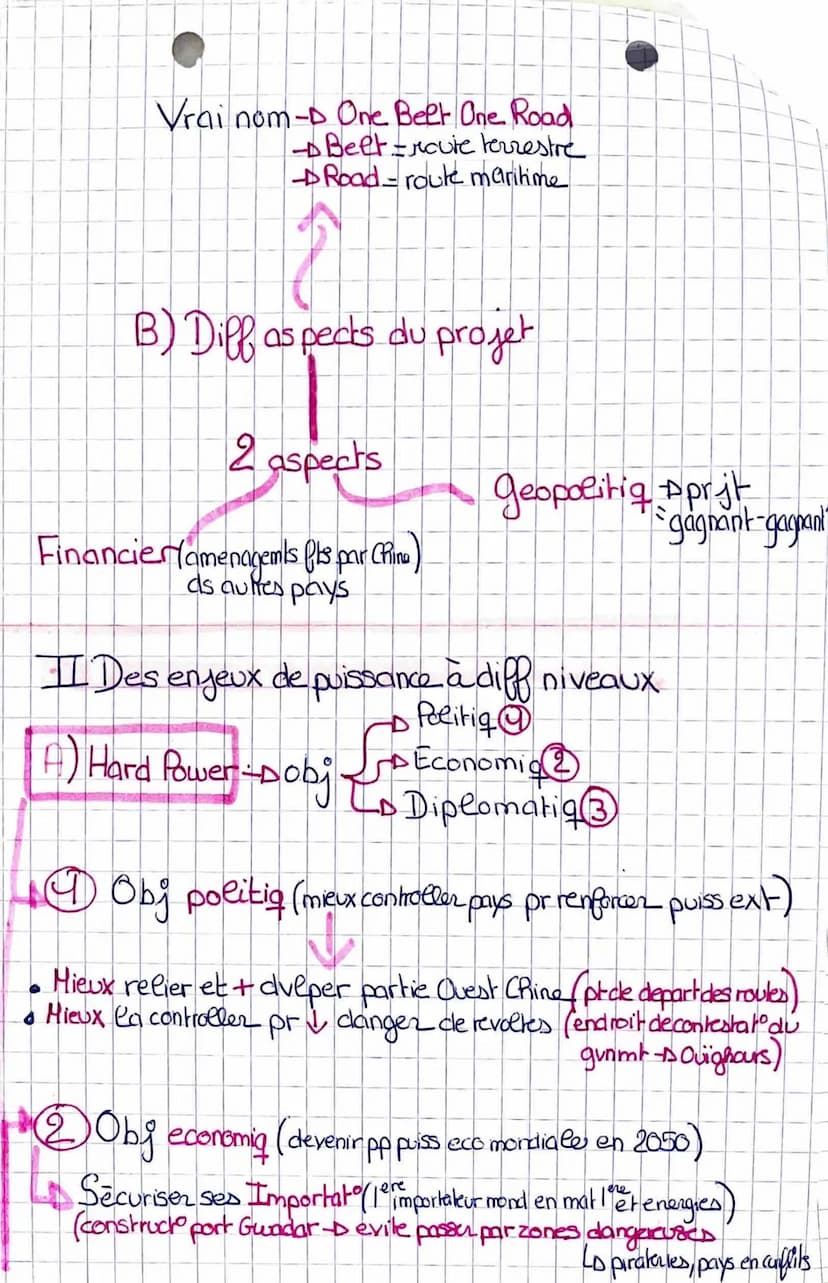 Vrai nom → One Belt One Road
→ Belt = route terrestre
→ Road = route maritime
B) Diff aspects du projet
2 aspects
Geopolitiq → prjt
"gagnant-gagnant"
Financier (amenagemts fts par Chine)
ds autres pays
II Des enjeux de puissance à diff niveaux
A) Hard Power → obj
→ Politiq ①
→ Economiq ②
→ Diplomatiq ③
① Obj politiq (mieux controller pays pr renforcer puiss ext)
• Mieux relier et + dvlper partie Ouest Chine (pt de depart des routes)
• Mieux la controller pr ↓ danger de revoltes (endroit de contestat° du
gvnmt → Ouïghours)
② Obj economiq (devenir pp puiss eco mondiale en 2050)
→ Sécuriser ses Importat° (1ere importateur mond en mat 1ere et energies)
(construct° port Guadar → evite passer par zones dangereuses
↳ pirateries, pays en conflits